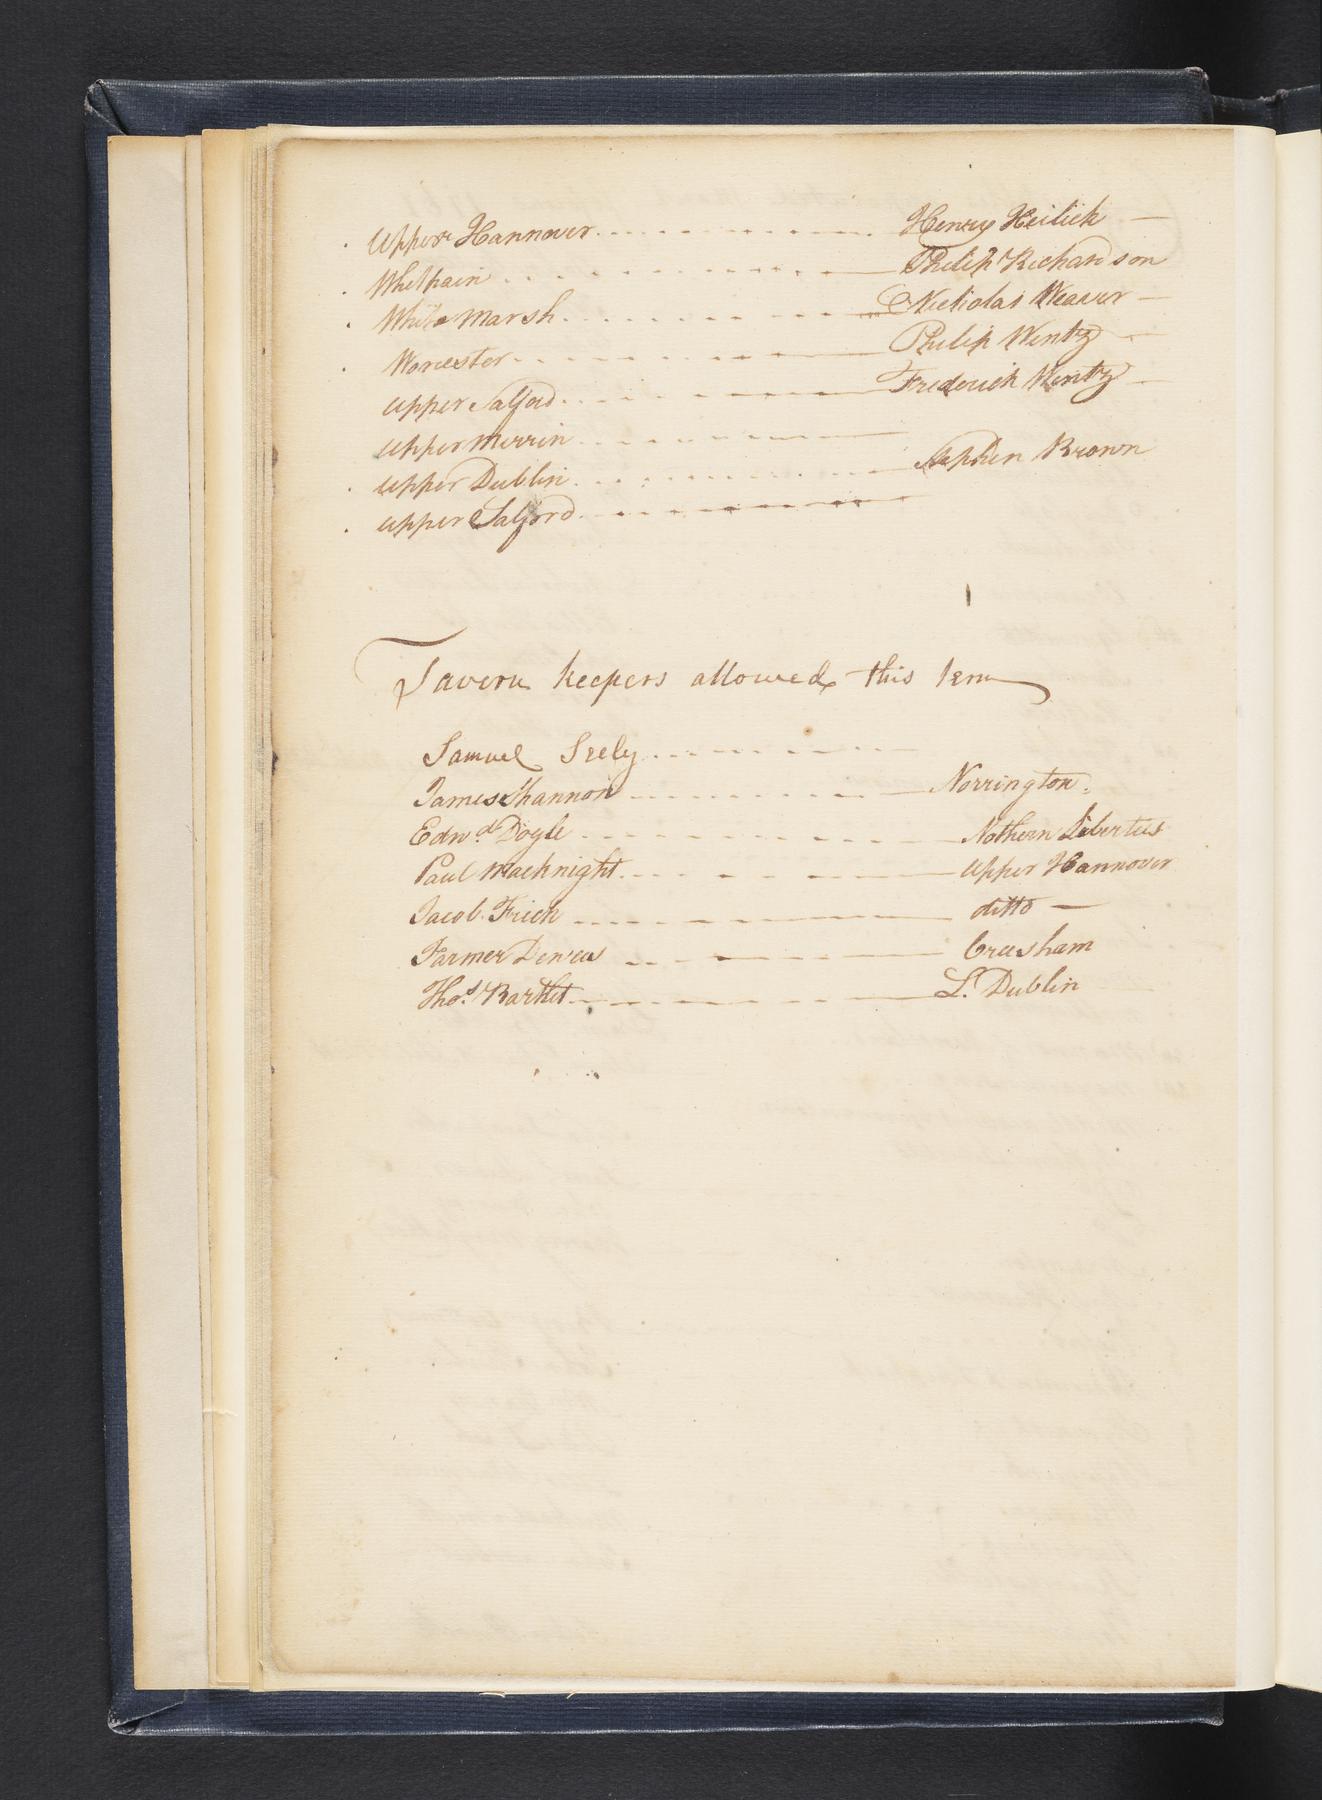 Upper Hannover - - - - - - - - - - Henry Heilich —
Whitpain - - - - - - - - - - Philip Richardson
White Marsh - - - - - - - - - - Nicholas Weaver —
Worcester - - - - - - - - - - Philip Wentz —
Upper Salford - - - - - - - - - - Frederick Wentz —
Upper Merrin - - - - - - - - - -
Upper Dublin - - - - - - - - - - Stephen Brown
Upper Salford - - - - - - - - - -
Tavern keepers allowed this term
Samuel Seely - - - - - - - -
James Shannon - - - - - - - - Norrington.
Edwd. Doyle - - - - - - - - Nothern Liberties
Paul Macknight - - - - - - - - Upper Hannover
Jacob Frick - - - - - - - - ditto —
Farmer Dewees - - - - - - - - Creesham
Thos. Bartlet - - - - - - - - L. Dublin